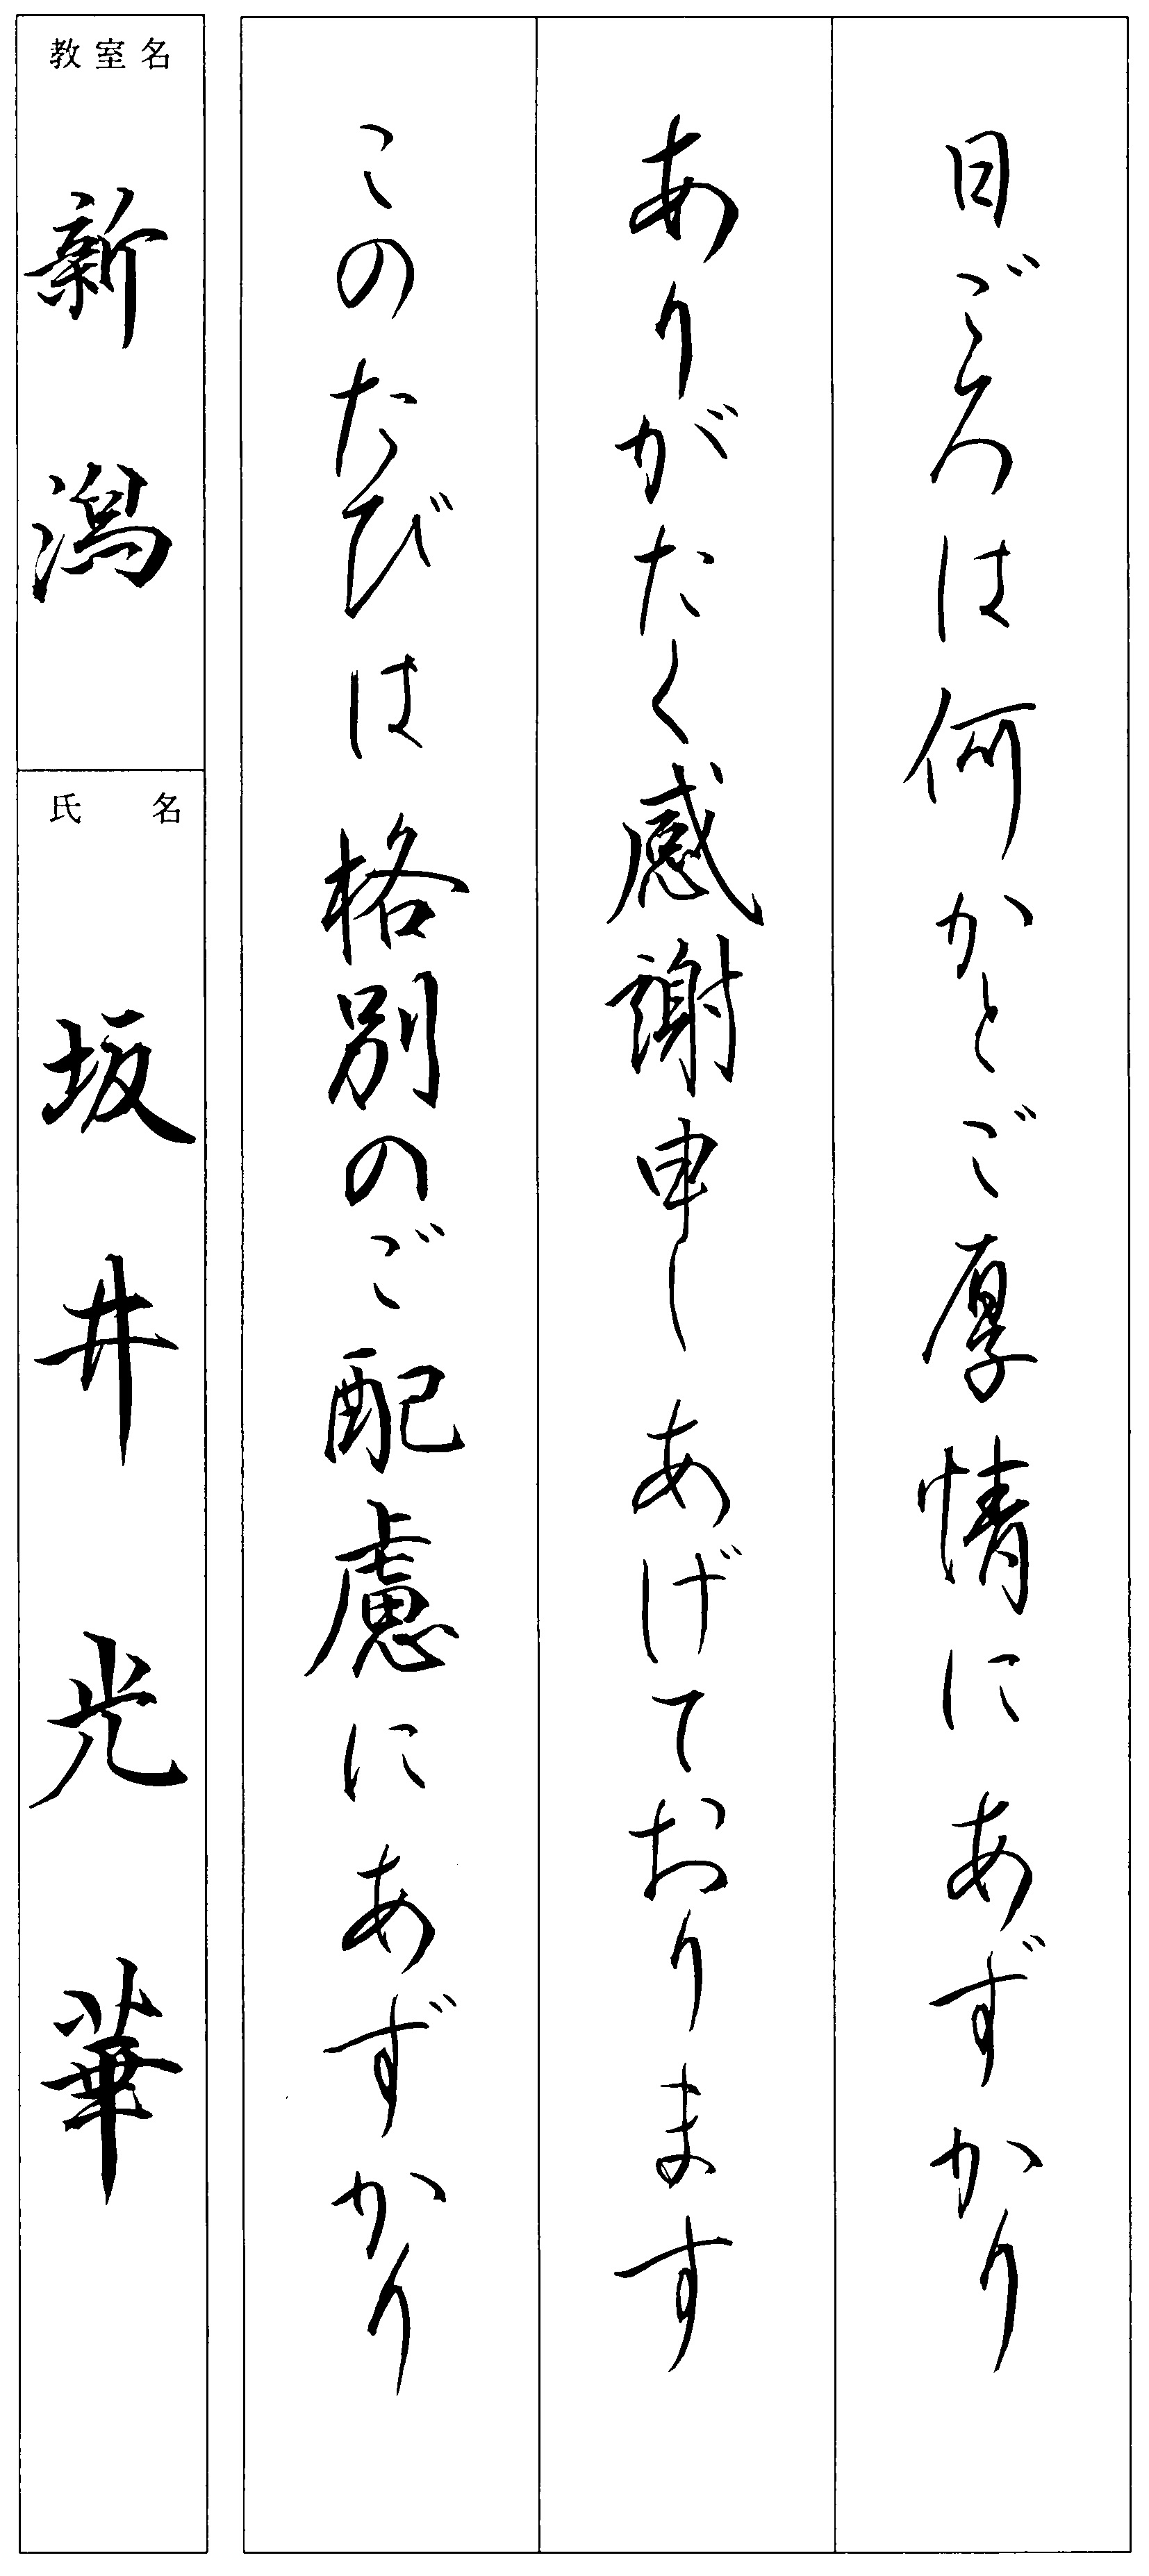 日ごろは何かとご厚情にあずかり
ありがたく感謝申しあげております
このたびは格別のご配慮にあずかり
教室名
新潟
氏名
坂井光華